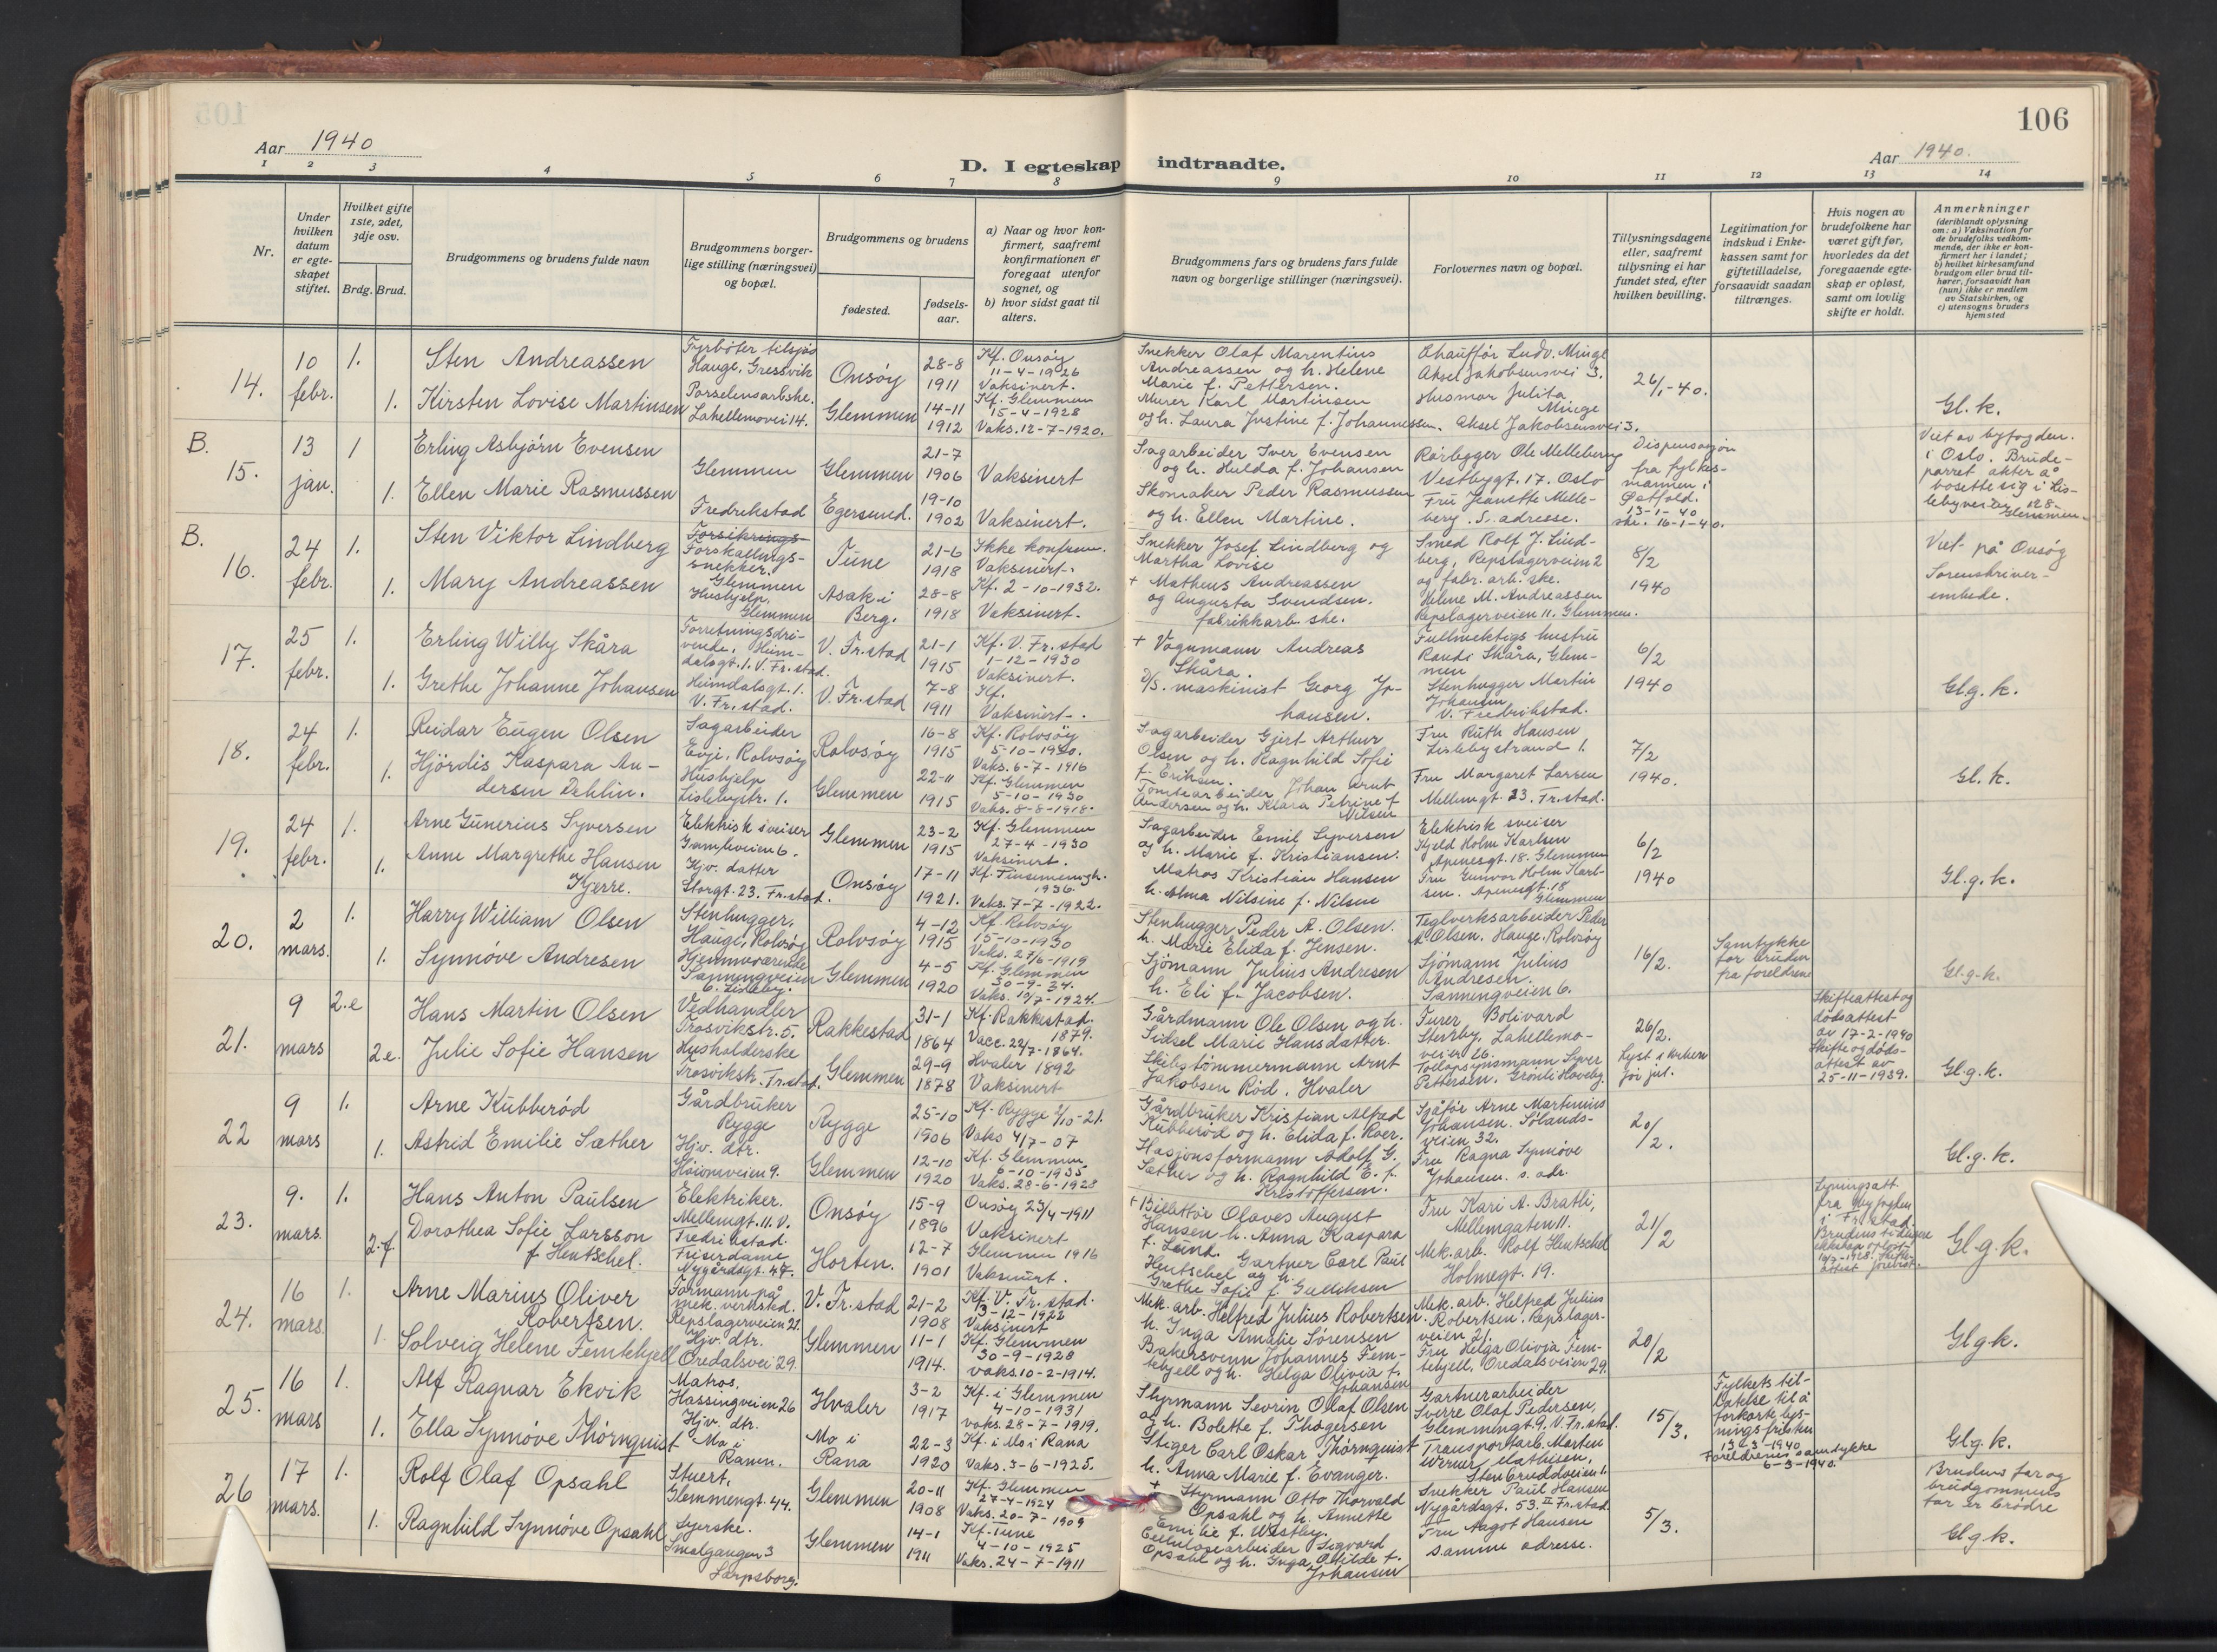 106
Aar 1940
D. I egteskap indtraadte.
Aar 1940.
1 2 3 4 5 6 7 8 9 10 11 12 13 14
Nr.
Under hvilken datum er egteskapet stiftet.
Hvilket gifte 1ste, 2det, 3dje osv.
Brdg. Brud.
Brudgommens og brudens fulde navn
Brudgommens borgerlige stilling (næringsvei) og bopæl.
Brudgommens og brudens
fødested.
fødselsaar.
a) Naar og hvor konfirmert, saafremt konfirmationen er foregaat utenfor sognet, og
b) hvor sidst gaat til alters.
Brudgommens fars og brudens fars fulde navn og borgerlige stillinger (næringsvei).
Forlovernes navn og bopæl.
Tillysningsdagene eller, saafremt tillysning ei har fundet sted, efter hvilken bevilling.
Legitimation for indskud i Enkekassen samt for giftetilladelse, forsaavidt saadan tiltrænges.
Hvis nogen av brudefolkene har været gift før, hvorledes da det foregaaende egteskap er opløst, samt om lovlig skifte er holdt.
Anmerkninger (deriblandt oplysning om: a) Vaksination for de brudefolks vedkommende, der ikke er konfirmert her i landet; b) hvilket kirkesamfund brudgom eller brud tilhører, forsaavidt han (hun) ikke er medlem av Statskirken, og c) utensogns bruders hjemsted
14.
10 febr.
1.
Sten Andreassen
Fyrbøter tilsjøs
Hauge, Gressvik
Onsøy
28-8 1911
Kf. Onsøy
11-4-1926
Vaksinert.
Snekker Olaf Marentius
Andreassen og h. Helene
Marie f. Pettersen.
Chauffør Ludv. Minge
Aksel Jakobsensvei 3.
26/1-40.
1.
Kirsten Lovise Martinsen
Porselensarbske.
Lahellemovei 14.
Glemmen
14-11 1912
Kf. Glemmen
15-4-1928
Vaks. 12-7-1920.
Murer Karl Martinsen
og h. Laura Justine f. Johannessen.
Husmor Julita
Minge
Aksel Jakobsensvei 3.
Gl. k.
B.
15.
13 jan.
1
Erling Asbjørn Evensen
Glemmen
Glemmen
21-7 1906
Vaksinert
Sagarbeider Iver Evensen
og h. Hulda f. Johansen
Rørlegger Ole Melleberg
Vestbygt. 17. Oslo
Dispensasjon
fra fylkesmannen i
Østfold.
13-1-40
ske. 16-1-40.
Viet av byfogden.
i Oslo. Brudeparret akter å
bosette sig i Lislebyveien 128
Glemmen
1.
Ellen Marie Rasmussen
Fredrikstad
Egersund.
19-10 1902
Vaksinert.
Skomaker Peder Rasmussen
og h. Ellen Martine.
Fru Jeanette Melleberg. S. adresse.
B.
16.
24 febr.
1.
Sten Viktor Lindberg
Forsikrings-
Forskallingssnekker.
Glemmen
Tune
21-6 1918
Ikke konfirm.
Vaksinert.
Snekker Josef Lindberg og
Martha Lovise
Smed Rolf J. Lindberg, Repslagerveien 2
8/2 1940
Viet på Onsøy
Sorenskriverembede.
1.
Mary Andreassen
Hushjelp.
Glemmen
Asak i
Berg.
28-8 1918
Kf. 2-10-1932.
Vaksinert.
+ Matheus Andreassen
og Augusta Svendsen.
fabrikkarb. ske.
og fabr. arb. ske.
Helene M. Andreassen
Repslagerveien 11. Glemmen.
17.
25 febr.
1.
Erling Willy Skåra
Forretningsdrivende, Heimdalsgt. 1. V. Fr.stad.
V. Fr.stad
21-1 1915
Kf. V. Fr.stad
1-12-1930
Vaksinert.
+ Vognmann Andreas
Skåra.
Fullmektigs hustru
Randi Skåra, Glemmen
6/2 1940
1.
Grethe Johanne Johansen
Heimdalsgt. 1.
V. Fr.stad.
V. Fr.stad
7-8 1911
Kf.
Vaksinert.
D/S. maskinist Georg Johansen.
Stenhugger Martin
Johansen
V. Fredrikstad.
Gl.g. k.
18.
24 febr.
1.
Reidar Eugen Olsen
Sagarbeider
Evje, Rolvsøy
Rolvsøy
16-8 1915
Kf. Rolvsøy
5-10-1930.
Vaks. 6-7-1916
Sagarbeider Gjert Arthur
Olsen og h. Ragnhild Sofie
f. Eriksen.
Fru Ruth Hansen
Lislebystrand 1.
7/2 1940.
1.
Hjørdis Kaspara Andersen Dehlin.
Hushjelp
Lislebystr. 1.
Glemmen
22-11 1915
Kf. Glemmen
5-10-1930
Vaks. 8-8-1918.
Tomtearbeider Johan Arnt
Andersen og h. Klara Petrine f.
Nilsen
Fru Margaret Larsen
Mellemgt. 23. Fr.stad.
Gl. k.
19.
24 febr.
1.
Arne Gunerius Syversen
Elektrisk sveiser
Gamleveien 6.
Glemmen
23-2 1915
Kf. Glemmen
27-4-1930
Vaksinert.
Sagarbeider Emil Syversen
og h. Marie f. Kristiansen.
Elektrisk sveiser
Kjeld Holm Karlsen
Apenesgt. 18. Glemmen
6/2 1940
1.
Anne Margrethe Hansen
Kjerre.
Hjv. datter
Storgt. 23. Fr.stad.
Onsøy
17-11 1921.
1936.
Vaks. 7-7-1922.
Matros Kristian Hansen
h. Alma Nilsine f. Nilsen
Fru Gunvor Holm Karlsen. Apenesgt. 18
Glemmen
Gl.g.k.
20.
2 mars.
1.
Harry William Olsen
Stenhugger.
Hauge, Rolvsøy
Rolvsøy
4-12 1915
Kf. Rolvsøy
15-10-1930
Vaks. 27/6-1919
Stenhugger Peder A. Olsen.
h. Marie Elida f. Jensen.
Teglverksarbeider Peder
A. Olsen. Hauge, Rolvsøy
16/2.
Samtykke
for bruden
fra foreldrene
1.
Synnøve Andresen
Hjemmeværende
Sanningveien
6. Lisleby.
Glemmen
4-5 1920
Kf. Glemmen
30-9-34.
Vaks. 10/7-1924.
Sjømann Julius Andresen
h. Eli f. Jacobsen.
Sjømann Julius
Andresen.
Sanningveien 6.
Gl.g.k.
21.
9 mars
2.e
Hans Martin Olsen
Vedhandler
Trosvikstr. 5.
Rakkestad
31-1 1864
Kf. Rakkestad.
1879.
Vacc. 22/7-1864.
Gårdmann Ole Olsen og h.
Sidsel Marie Hansdatter.
Furer Bolivard
Stenby, Lahellemoveien 26.
26/2.
Lyst i kirken
for jul.
Skifteattest og
dødsattest
av 17-2-1940
Skifte og dødsattest av
25-11-1939.
2e.
Julie Sofie Hansen
Husholderske
Trosvikstr. Fr.stad.
Glemmen
29-9 1878
Hvaler 1892
Vaksinert
Skibstømmermann Arnt
Jakobsen Rød. Hvaler
Tollopsynsmann Syver
Pettersen. Grønli Haveby.
Gl.g.k.
22
9 mars
1.
Arne Kubberød
Gårdbruker
Rygge
Rygge
25-10 1906
Kf. Rygge 2/10-21.
Vaks 4/7-07
Gårdbruker Kristian Alfred
Kubberød og h. Elida f. Roer.
Sjåfør Arne Martinius
Johansen. Sølandsveien 32.
20/2.
1.
Astrid Emilie Sæther
Hjv. dtr.
Haionveien 9.
Glemmen
12-10 1920
Kf. Glemmen
6-10-1935
Vaks. 28-6-1923
Stasjonsformann Adolf G.
Sæther og h. Ragnhild E. f.
Kristoffersen.
Fru Ragna Synnøve
Johansen. s. adr.
Gl.g.k.
23.
9. mars.
1.
Hans Anton Paulsen
Elektriker.
Mellemgt. 11. V.
Fredrikstad.
Onsøy
15-9 1896
Onsøy 23/4-1911
Vaksinert
+ Billettør Olaves August
Hansen h. Anna Kaspara
f. Lund.
Fru Kari A. Bratli,
Mellemgaten 11.
21/2
fra byfogden
i Fr.stad.
2.f.
Dorothea Sofie Larsson
f. Hentschel.
Friserdame
Nygårdsgt. 47.
Horten.
12-7 1901
Glemmen 1916
Vaksinert.
Gartner Carl Paul
Hentschel og h.
Grethe Sofie f. Gulliksen
Mek. arb. Rolf Hentschel
Holmegt. 19.
Gl.g.k.
24.
16 mars.
1.
Arne Marius Oliver
Robertsen.
Formann på
mek. verksted.
Repslagerveien 21.
V. Fr.stad
21-2 1908
Kf. V. Fr.stad.
3-12-1922
Vaksinert
Mek. arb. Helfred Julius Robertsen.
h. Inga Amalie Sørensen
Mek. arb. Helfred Julius
Robertsen. Repslagerveien 21.
20/2
1.
Solveig Helene Femtehjell
Hjv. dtr.
Oredalsvei 29.
Glemmen
11-1 1914.
Kf. Glemmen
30-9-1928
Vaks. 10-2-1914.
Bakersvenn Johannes Femtehjell og h. Helga Olivia f.
Johansen
Fru Helga Olivia Femtehjell, Oredalsveien 29.
Gl.g.k.
25.
16 mars
1.
Alf Ragnar Ekvik
Matros.
Hassingveien 26
Hvaler
3-2 1917
Kf. i Glemmen
4-10-1931
vaks. 28-7-1919.
Styrmann Sevrin Olaf Olsen
og h. Bolette f. Thøgersen
Gartnerarbeider
Sverre Olaf Pedersen,
Glemmengt 9, V. Fr.stad.
15/3.
Fylkets tillatelse til å
forkorte lysningsfristen
13-3-1940
Foreldrenes samtykke
6-3-1940.
1.
Ella Synnøve Thørnquist
Hjv. dtr.
Mo i
Ranen.
Mo i
Rana
22-3 1920
Kf. i Mo i Rana
Vaks. 3-6-1925.
Stiger Carl Oskar Thørnquist
h. Anna Marie f. Evanger.
Transportarb. Morten
Werner Mathisen,
Gl.g.k.
26
17 mars.
1.
Rolf Olaf Opsahl
Stuert,
Glemmengt. 44.
Glemmen
20-11 1908
Kf. Glemmen
27-4-1924
Vaks. 20-7-1909
+ Styrmann Otto Thorvald
Opsahl og h. Annette
Emilie f. Westby.
Snekker Paul Hansen
Nygårdsgt. 53. II Fr.stad
5/3.
Brudens far og
brudgommens
far er brødre
1.
Ragnhild Synnøve Opsahl
Syerske.
Smalgangen 3
Sarpsborg.
Glemmen
14-1 1911
Kf. Tune
4-10-1925
Vaks. 24-7-1911
Cellulosearbeider Sigvard
Opsahl og h. Inga Otilde f.
Johansen
Fru Aagot Hansen
samme adresse.
Gl.g.k.